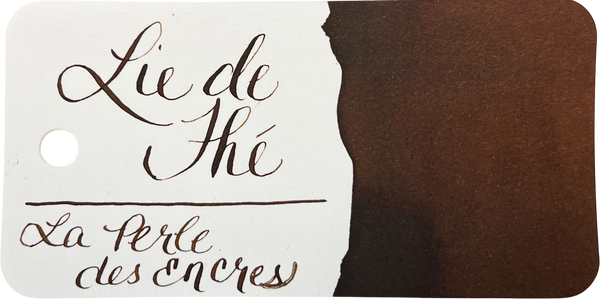 Lie de
Thé
La Perle
des Encres